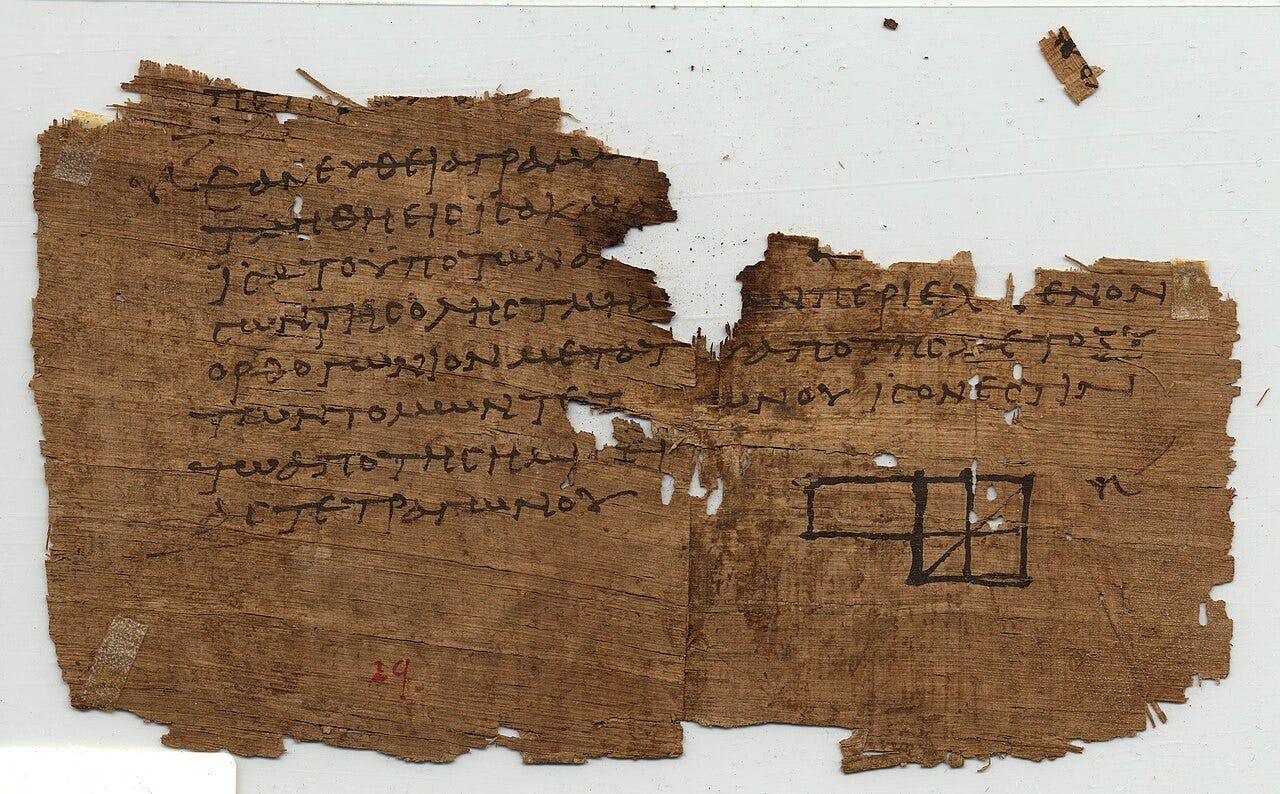 ΕΑΝ ΕΥΘΕΙΑ ΓΡΑΜΜ
ΤΜΗΘΗ ΕΙϹ ΙϹΑ ΚΑΙ Α
ΙϹΑ ΤΟ ΥΠΟ ΤΩΝ ΑΝ
ϹΩΝ ΤΗϹ ΟΛΗϹ ΤΜΗΜ ΩΝ ΠΕΡΙΕΧ ΕΝΟΝ
ΟΡΘΟΓΩΝΙΟΝ ΜΕΤΑ ΤΟΥ ΑΠΟ ΤΗϹ ΜΕΤΟΞΥ
ΤΩΝ ΤΟΜΩΝ ΤΕΤ ΩΝΟΥ ΙϹΟΝ ΕϹΤΙΝ
ΤΩ ΑΠΟ ΤΗϹ ΗΜΙϹΕΙ
ΑϹ ΤΕΤΡΑΓΩΝΟΥ
29